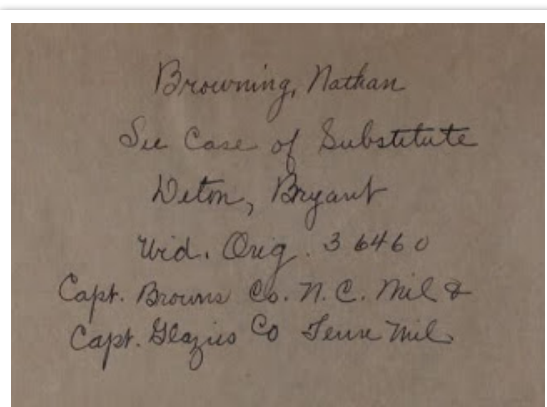 Browning, Nathan
See Case of Substitute
Deton, Bryant
Wid. Orig. 36460
Capt. Browns Co. N.C. Mil &
Capt. Glazies Co Tenn Mil